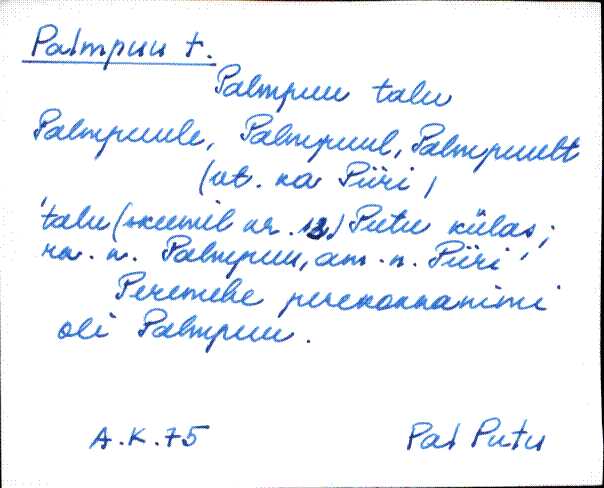 Palmpuu t.
Palmpuu talu
Palmpuule, Palmpuul, Palmpuult
(vt. ka Piiri)
talu (skeemil nr. 12) Putu külas;
ra. n. Palmpuu, am. n. Piiri
Peremehe perekonnanimi
oli Palmpuu.
A.K. 75 Pal Putu